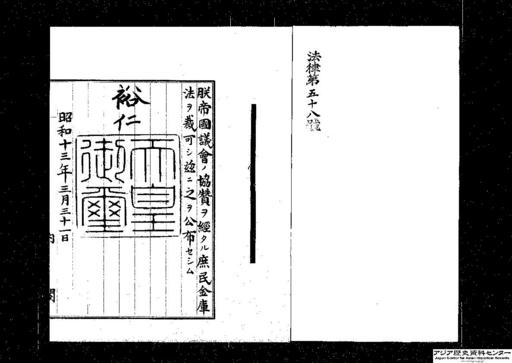 法律第五十八號
朕帝國議會ノ協贊ヲ經タル庶民金庫
法ヲ裁可シ茲ニ之ヲ公布セシム
裕仁
天皇御璽
昭和十三年三月三十一日
内閣
アジア歴史資料センター
Japan Center for Asian Historical Records